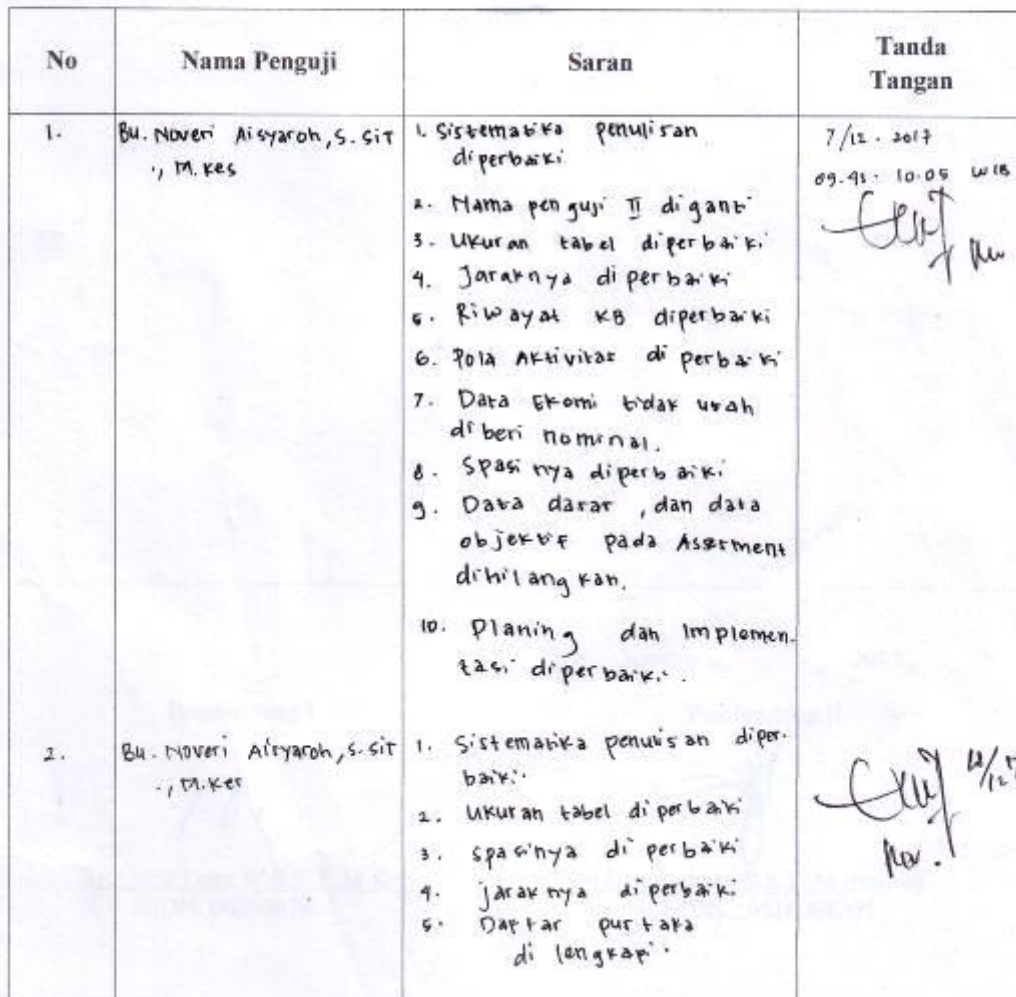 No
Nama Penguji
Saran
Tanda
Tangan
1.
Bu. Noveri Aisyaroh, S.SiT
., M.Kes
1. Sistematika penulisan
diperbaiki
2. Nama penguji II diganti
3. Ukuran tabel diperbaiki
4. Jaraknya diperbaiki
5. Riwayat KB diperbaiki
6. Pola Aktivitas diperbaiki
7. Data Ekomi tidak usah
diberi nominal.
8. Spasinya diperbaiki
9. Data dasar, dan data
objektif pada Assesment
dihilangkan.
10. Planing dan Implemen-
tasi diperbaiki.
7/12.2017
10.05 WIB
2.
Bu. Noveri Aisyaroh, S.SiT
., M.Kes
1. Sistematika penulisan diper-
baiki
2. Ukuran tabel diperbaiki
3. spasinya diperbaiki
4. jaraknya diperbaiki
5. Daftar pustaka
dilengkapi.